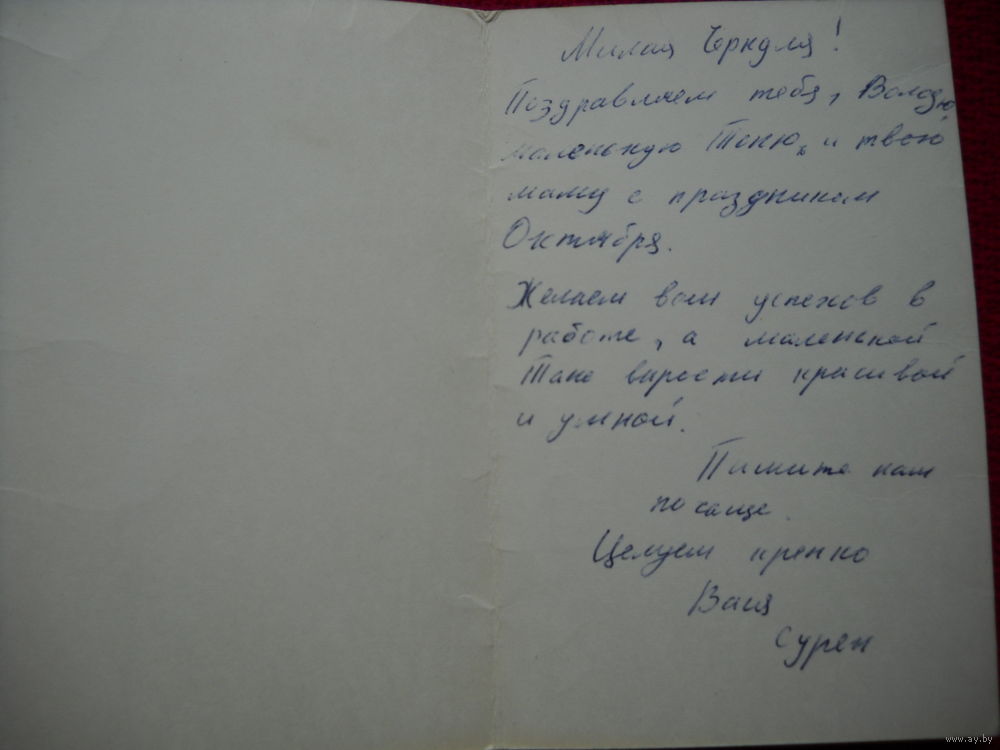 Милая !
Поздравляем тебя, Володю
маленькую Таню, и твою
маму с праздником
Октября.
Желаем вам успехов в
работе, а маленькой
Тане вырасти красивой
и умной.
Пишите нам
по
Целуем крепко
Ваш
Сурен
www.ay.by